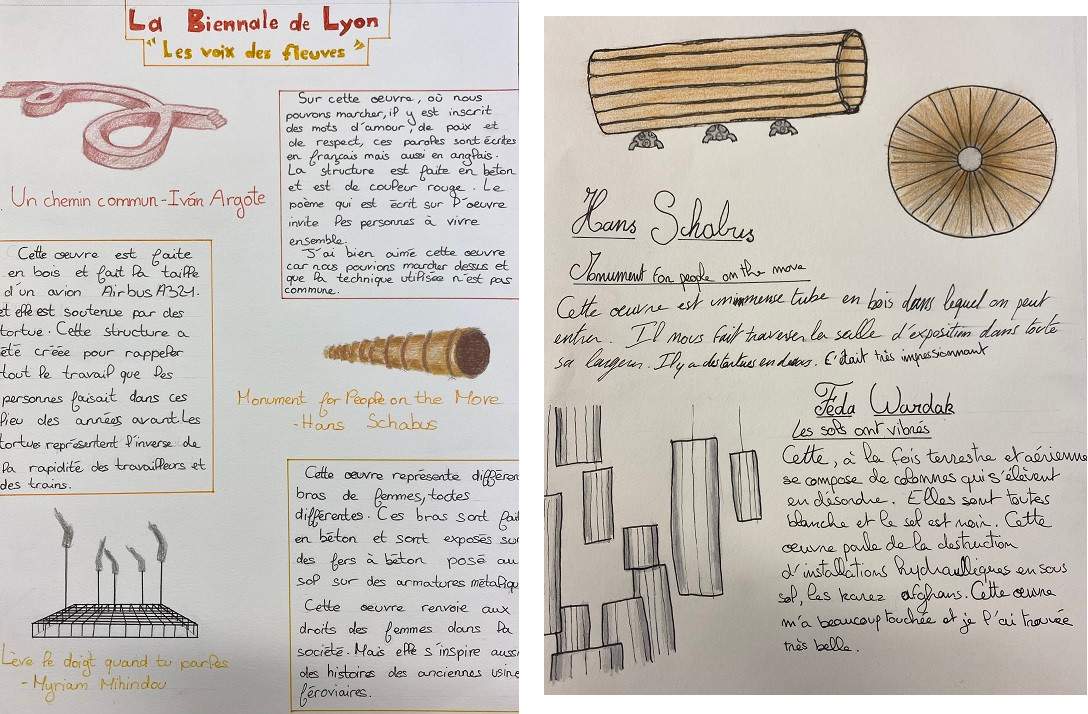 La Biennale de Lyon
"Les voix des fleuves"
Sur cette œuvre, où nous
pouvons marcher, il y est inscrit
des mots d'amour, de paix et
de respect, ces paroles sont écrites
en français mais aussi en anglais.
La structure est faite en béton
et est de couleur rouge. Le
poème qui est écrit sur l'oeuvre
invite les personnes à vivre
ensemble.
J'ai bien aimé cette oeuvre
car nous pouvions marcher dessus et
que la technique utilisée n'est pas
commune.
Un chemin commun - Iván Argote
Cette œuvre est faite
en bois et fait la taille
d'un avion Airbus A321.
et elle est soutenue par des
tortue. Cette structure a
été créée pour rappeler
tout le travail que les
personnes faisait dans ces
lieu des années avant. Les
tortue représentent l'inverse de
la rapidité des travailleurs et
des trains.
Monument for People on the Move
- Hans Schabus
Cette œuvre représente différen
bras de femmes, toutes
différentes. Ces bras sont fait
en béton et sont exposés sur
des fers à béton posé au
sol sur des armatures métalliqu
Cette oeuvre renvoie aux
droits des femmes dans la
société. Mais elle s'inspire aussi
des histoires des anciennes usine
féroviaires.
Lève le doigt quand tu parles
- Myriam Mihindou
Hans Schabus
Monument for people on the move
Cette œuvre est un immense tube en bois dans lequel on peut
entrer. Il nous fait traverser la salle d'exposition dans toute
sa largeur. Il y a des tortues en dessous. C'était très impressionnant
Féda Wardak
Les sols ont vibrés
Cette, à la fois terrestre et aérienne
se compose de colonnes qui s'élèvent
en désordre. Elles sont toutes
blanche et le sol est noir. Cette
œuvre parle de la destruction
d'installations hydrauliques en sous
sol, les karez afghans. Cette œuvre
m'a beaucoup touchée et je l'ai trouvée
très belle.